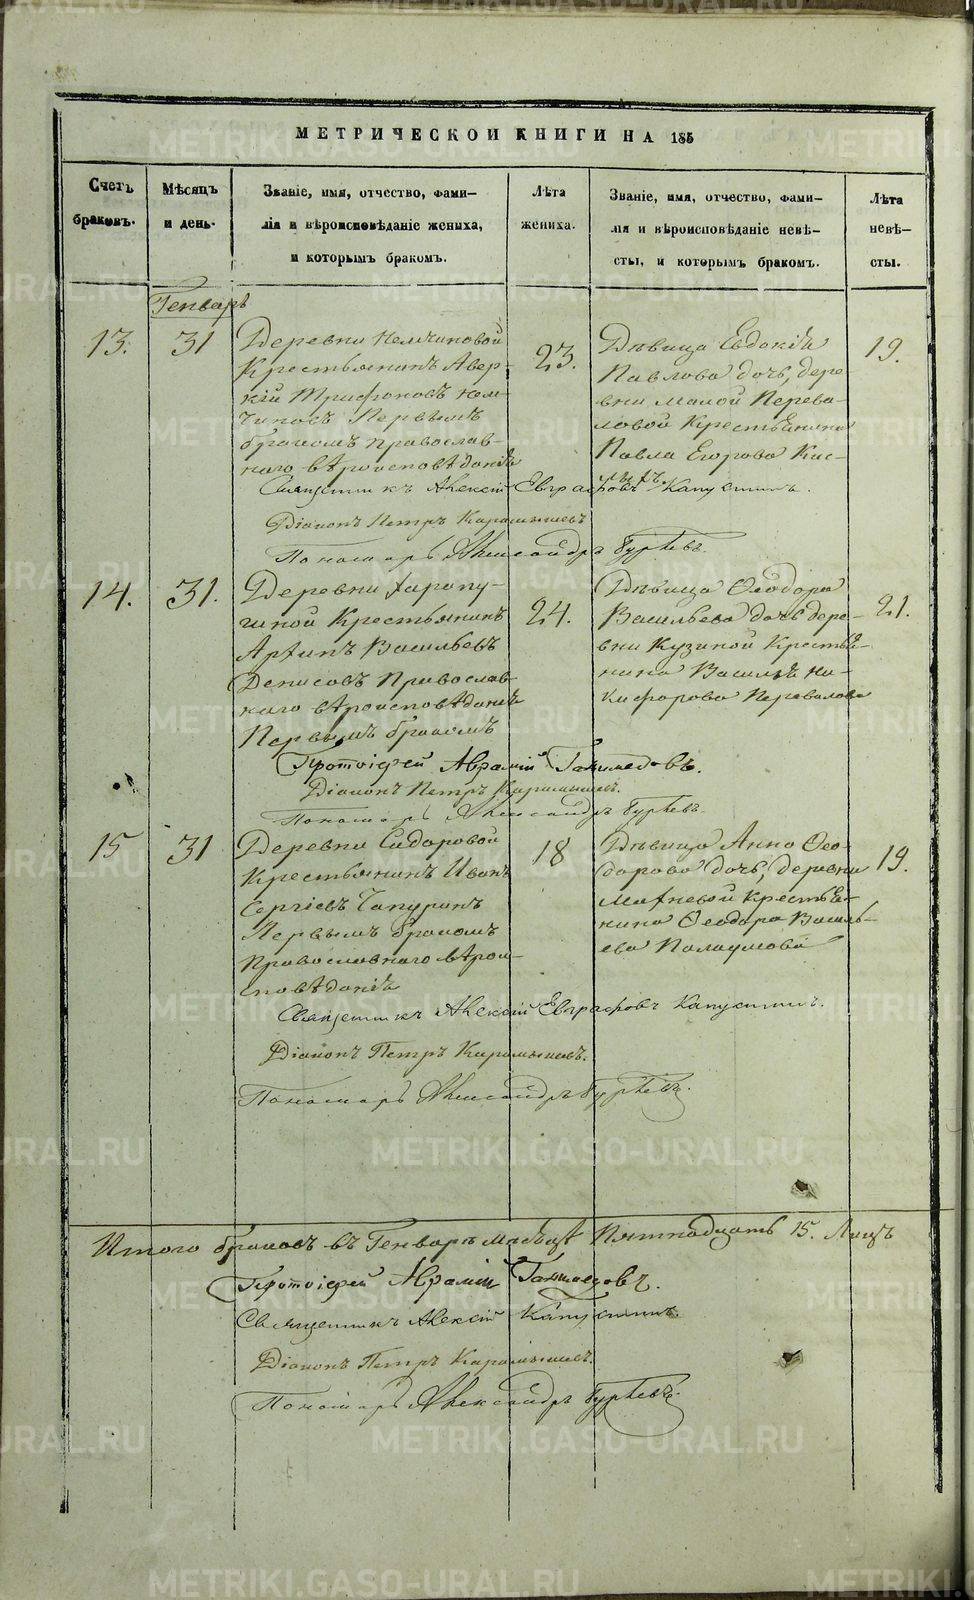 МЕТРИЧЕСКОИ КНИГИ НА 185
Счетъ браковъ.
Мѣсяцъ и день.
Званіе, имя, отчество, фами-
лія и вѣроисповѣданіе жениха,
и которымъ бракомъ.
Лѣта жениха.
Званіе, имя, отчество, фами-
лія и вѣроисповѣданіе невѣ-
сты, и которымъ бракомъ.
Лѣта невѣ-
сты.
Генварь
13.
31
Деревни Немчиновой
Крестьянинъ Авер-
кій Трифоновъ Нем-
чиновъ Первымъ
бракомъ православ-
наго вѣроисповѣданія
23.
Дѣвица Евдокія
Павлова дочь, дере
вни малой Перева-
ловой Крестьянина
Павла Егорова Кис-
19.
Священникъ Алексій Евграфовъ Капустинъ.
Діаконъ Петръ Карамышевъ
Пономарь Александръ Гурьевъ.
14.
31.
Деревни
Крестьянинъ
Архипъ Васильевъ
Денисовъ Православ-
наго вѣроисповѣданія
Первымъ бракомъ
24.
Дѣвица Ѳеодора
Васильева дочь дере-
вни Кузиной Крестья-
нина Василья Ни-
кифорова Перевалова
21.
Протоіерей Аврамій
Діаконъ Петръ Карамышевъ.
Пономарь Александръ Гурьевъ.
15
31
Деревни Сидоровой
Крестьянинъ Иванъ
Сергіевъ Чапуринъ
Первымъ бракомъ
Православнаго вѣрои-
сповѣданія
18
Дѣвица Анна Ѳео-
дорова дочь, деревни
Махневой Крестья-
нина Ѳеодора Василь-
ева Полаумова
19.
Священникъ Алексій Евграфовъ Капустинъ.
Діаконъ Петръ Карамышевъ.
Пономарь Александръ Гурьевъ.
Итого браковъ въ Генварѣ мѣсяцѣ Пятнадцать 15.
Протоіерей Аврамій
Священникъ Алексій Капустинъ.
Діаконъ Петръ Карамышевъ.
Пономарь Александръ Гурьевъ.
METRIKI.GASO-URAL.RU